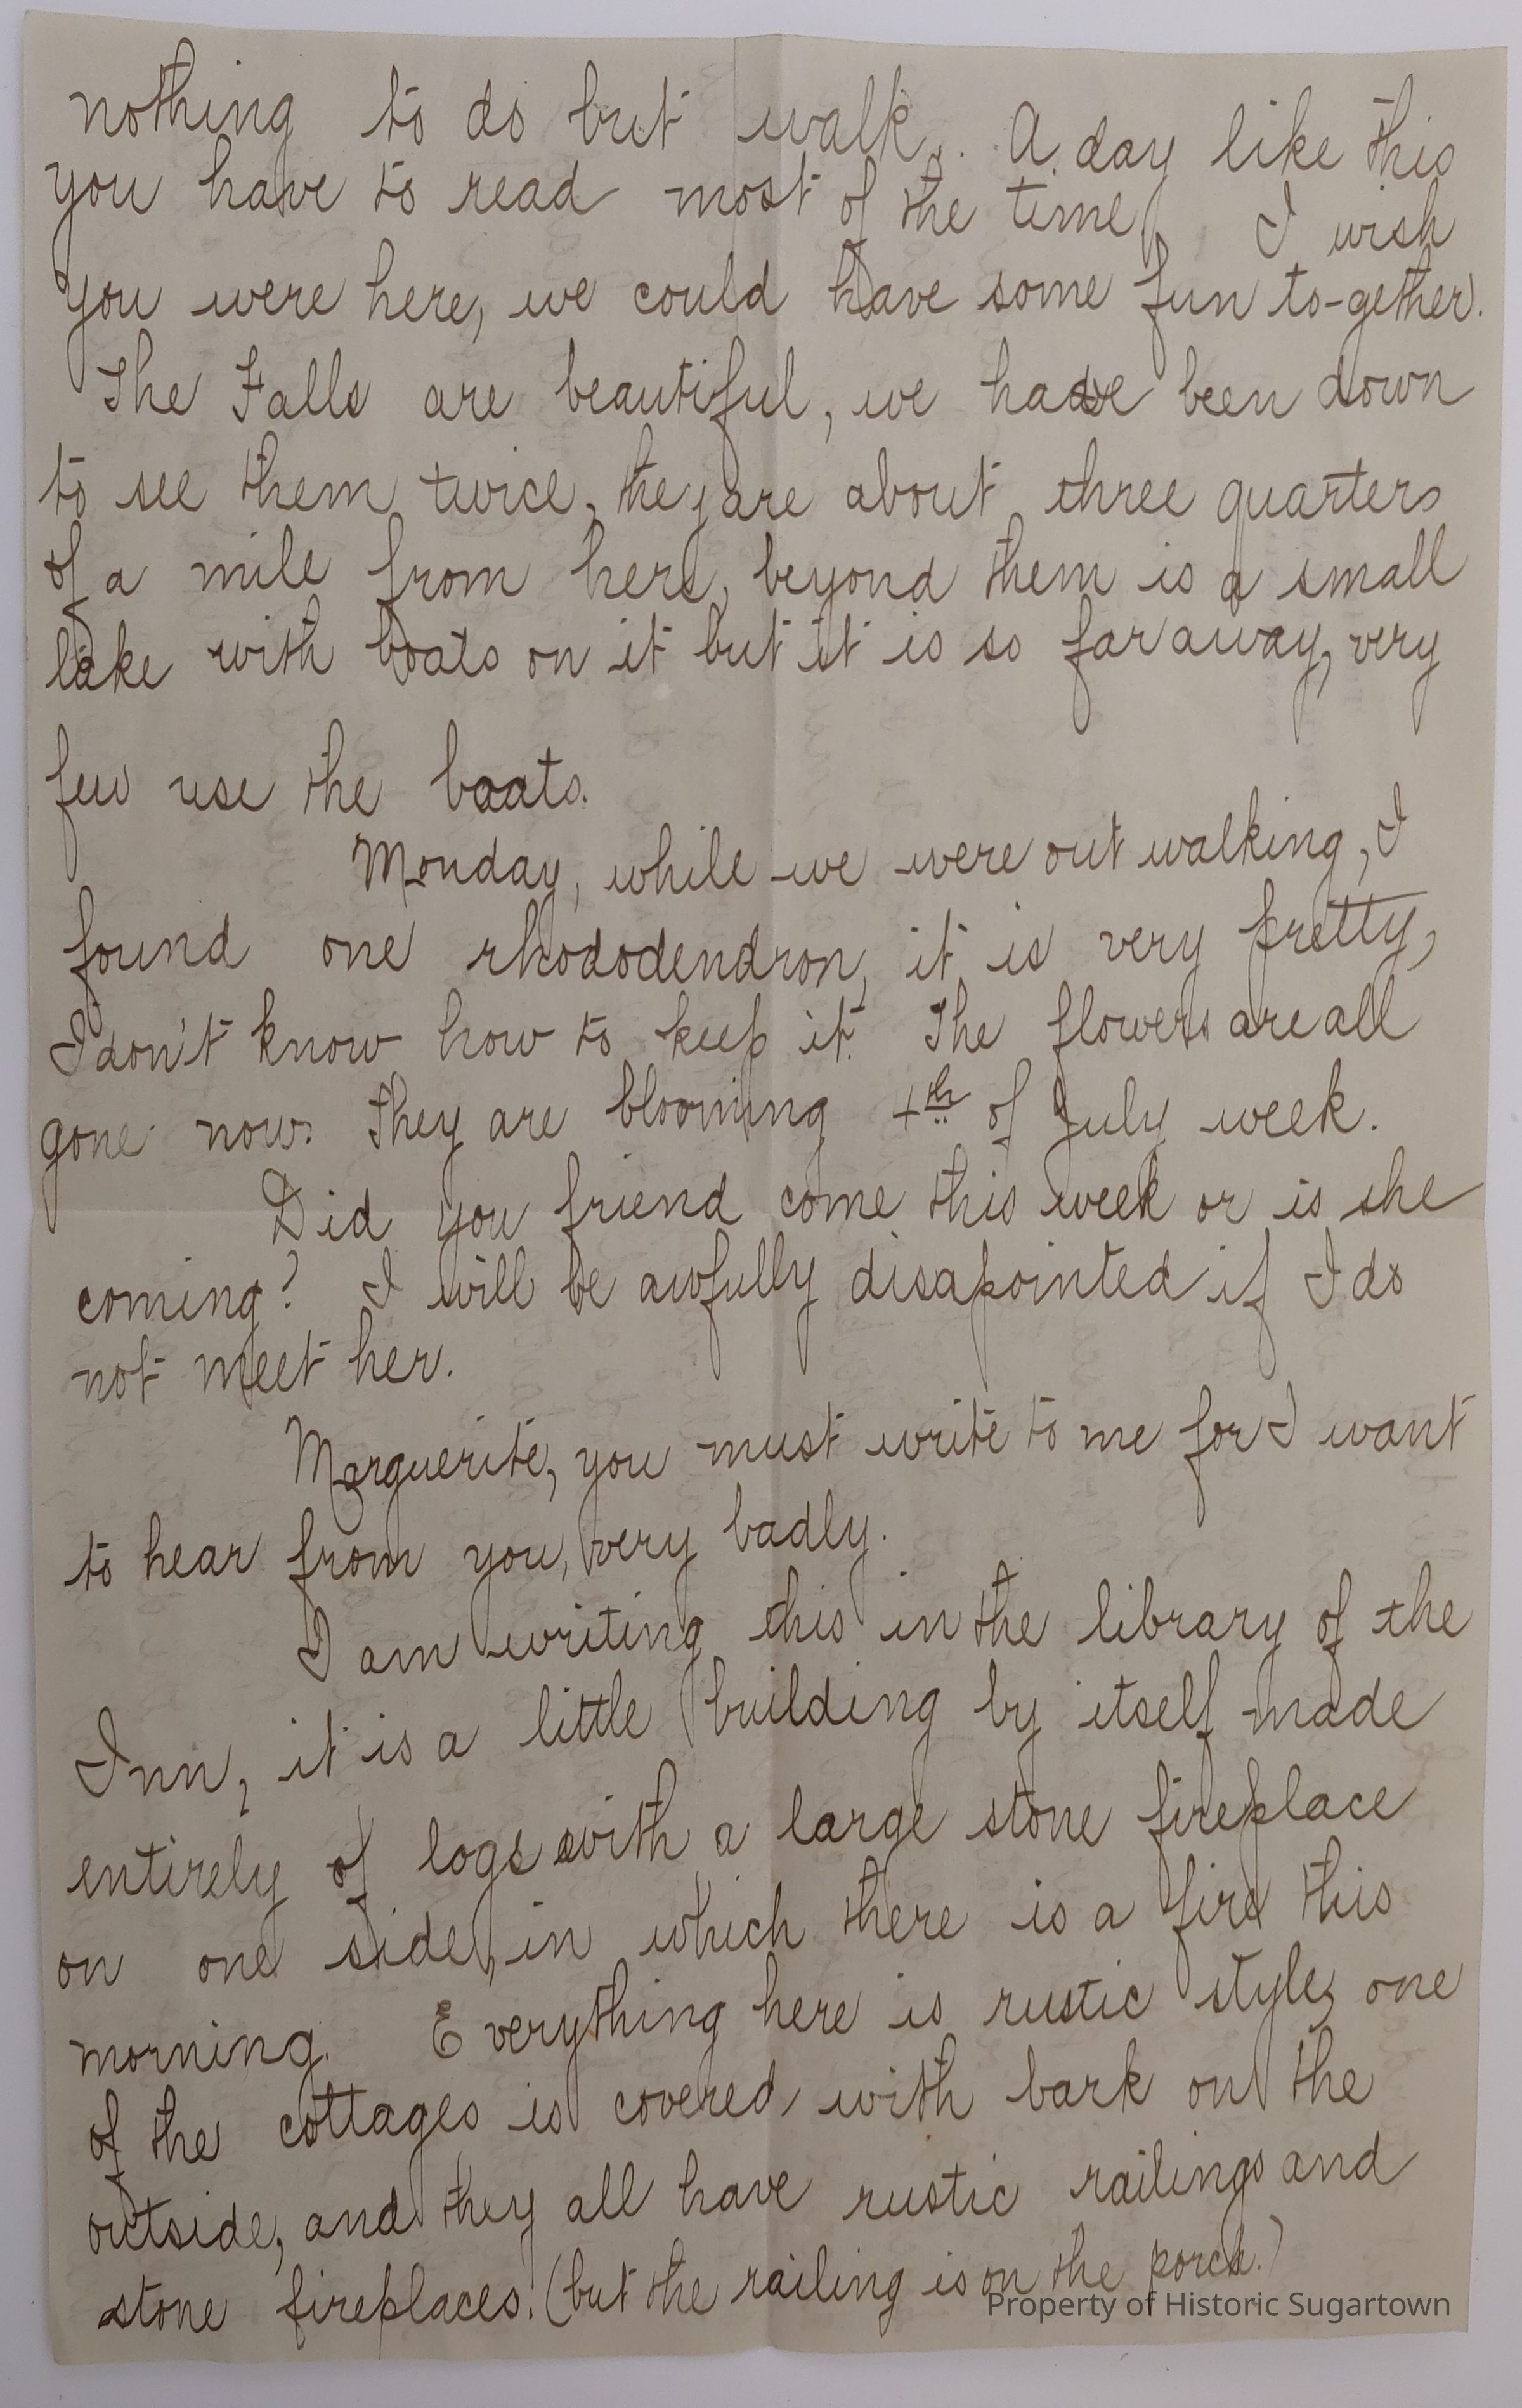 nothing to do but walk. A day like this
you have to read most of the time. I wish
you were here, we could have some fun to-gether.
The Falls are beautiful, we have been down
to see them twice, they are about three quarters
of a mile from here, beyond them is a small
lake with boats on it but it is so far away, very
few use the boats.
Monday, while we were out walking, I
found one rhododendron, it is very pretty,
I don't know how to keep it. The flowers are all
gone now. They are blooming 4th of July week.
Did you friend come this week or is she
coming? I will be awfully disapointed if I do
not meet her.
Marguerite, you must write to me for I want
to hear from you, very badly.
I am writing this in the library of the
Inn, it is a little building by itself made
entirely of logs with a large stone fireplace
on one side, in which there is a fire this
morning. Everything here is rustic style, one
of the cottages is covered with bark on the
outside, and they all have rustic railings and
stone fireplaces. (but the railing is on the porch.)
Property of Historic Sugartown